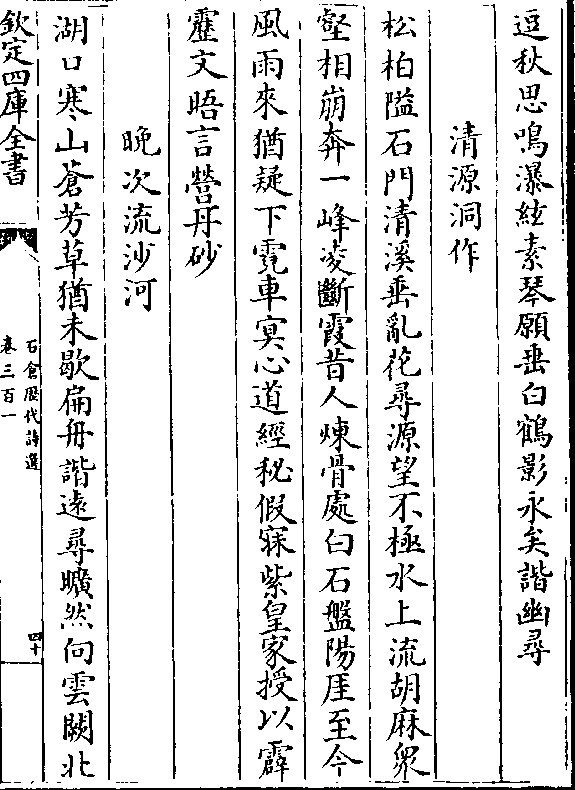 逗秋思鳴瀑絃素琴願垂白鶴影永矣諧幽尋
清源洞作
松柏隘石門清溪垂亂花尋源望不極水上流胡麻衆
壑相崩奔一峰凌斷霞昔人煉骨處白石盤陽厓至今
風雨來猶疑下霓車冥心道經秘假寐紫皇家授以霹
靂文晤言營丹砂
晚次流沙河
湖口寒山蒼芳草猶未歇扁舟諧遠尋曠然向雲闕北
欽定四庫全書
石倉歷代詩選
卷三百一
四十